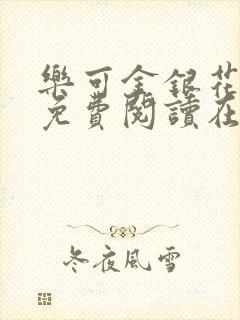 樂可金銀花
免費閱讀在
冬夜風雪